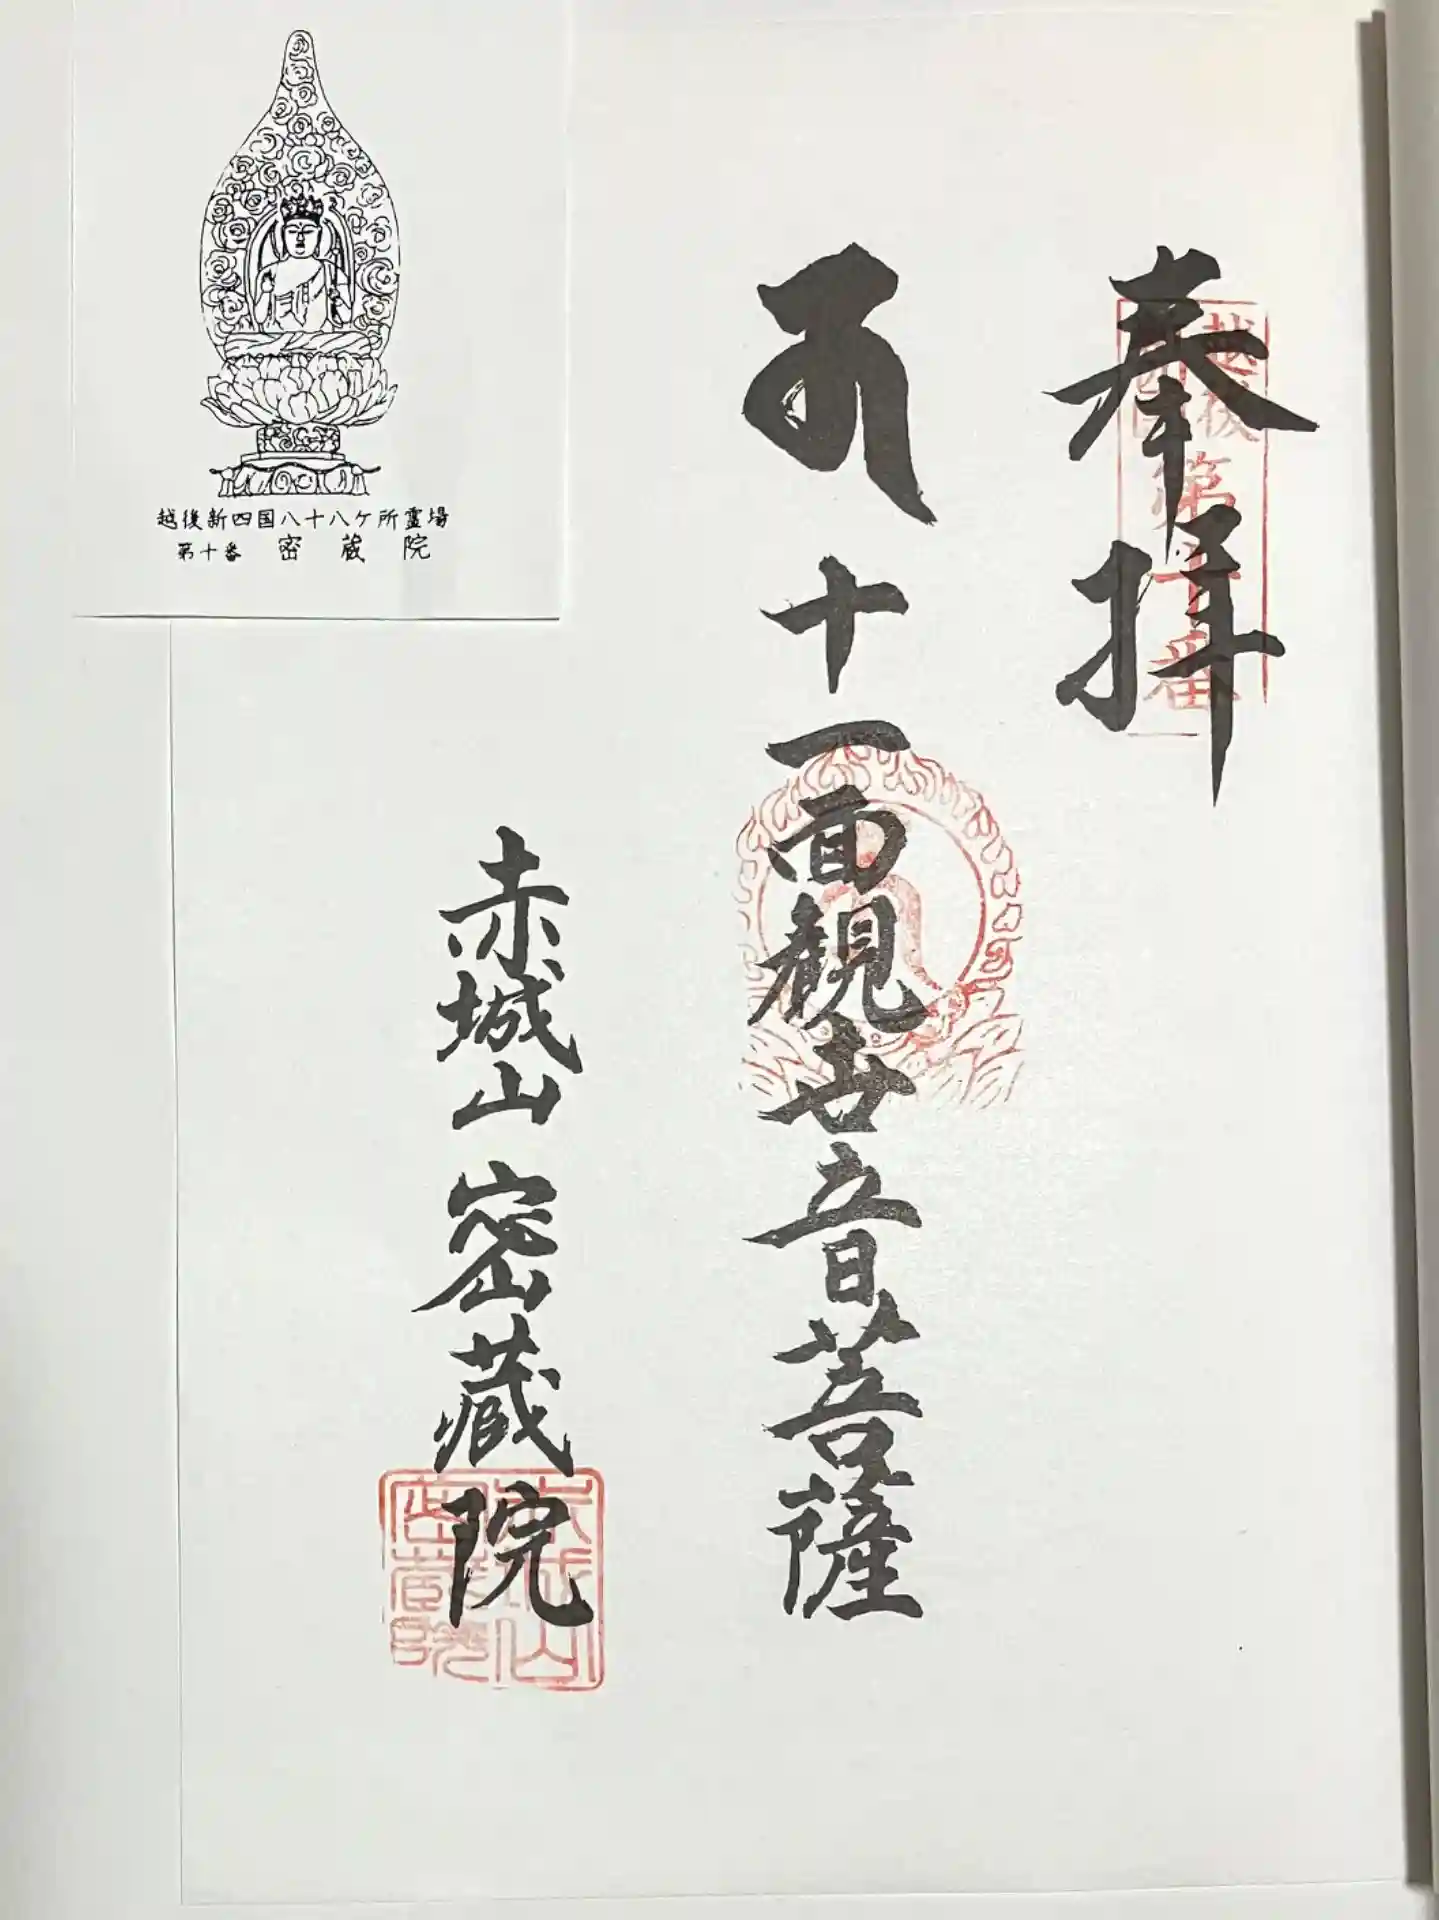 奉拝
越後
第十番
十一面観世音菩薩
赤城山 密蔵院
赤城山
密蔵院
越後新四国八十八ケ所霊場
第十番 密蔵院